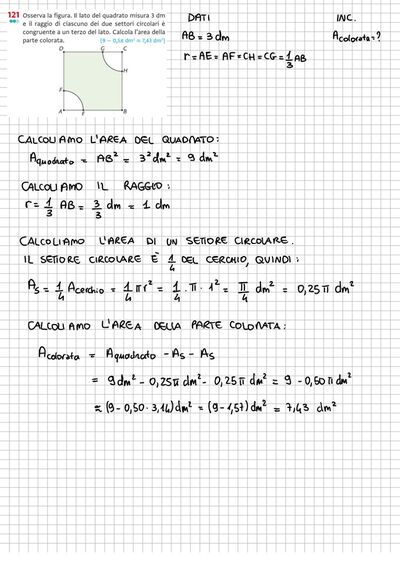 121 Osserva la figura. Il lato del quadrato misura 3 dm
e il raggio di ciascuno dei due settori circolari è
congruente a un terzo del lato. Calcola l'area della
parte colorata. [9 − 0,5π dm² ≈ 7,43 dm²]
D G C
H
F
A E B
DATI INC.
AB = 3 dm Acolorata = ?
r = AE = AF = CH = CG = 1/3 AB
CALCOLIAMO L'AREA DEL QUADRATO:
Aquadrato = AB² = 3² dm² = 9 dm²
CALCOLIAMO IL RAGGIO:
r = 1/3 AB = 3/3 dm = 1 dm
CALCOLIAMO L'AREA DI UN SETTORE CIRCOLARE.
IL SETTORE CIRCOLARE È 1/4 DEL CERCHIO, QUINDI:
As = 1/4 Acerchio = 1/4 π r² = 1/4 · π · 1² = π/4 dm² = 0,25 π dm²
CALCOLIAMO L'AREA DELLA PARTE COLORATA:
Acolorata = Aquadrato − As − As
= 9 dm² − 0,25 π dm² − 0,25 π dm² = 9 − 0,50 π dm²
≈ (9 − 0,50 · 3,14) dm² = (9 − 1,57) dm² = 7,43 dm²